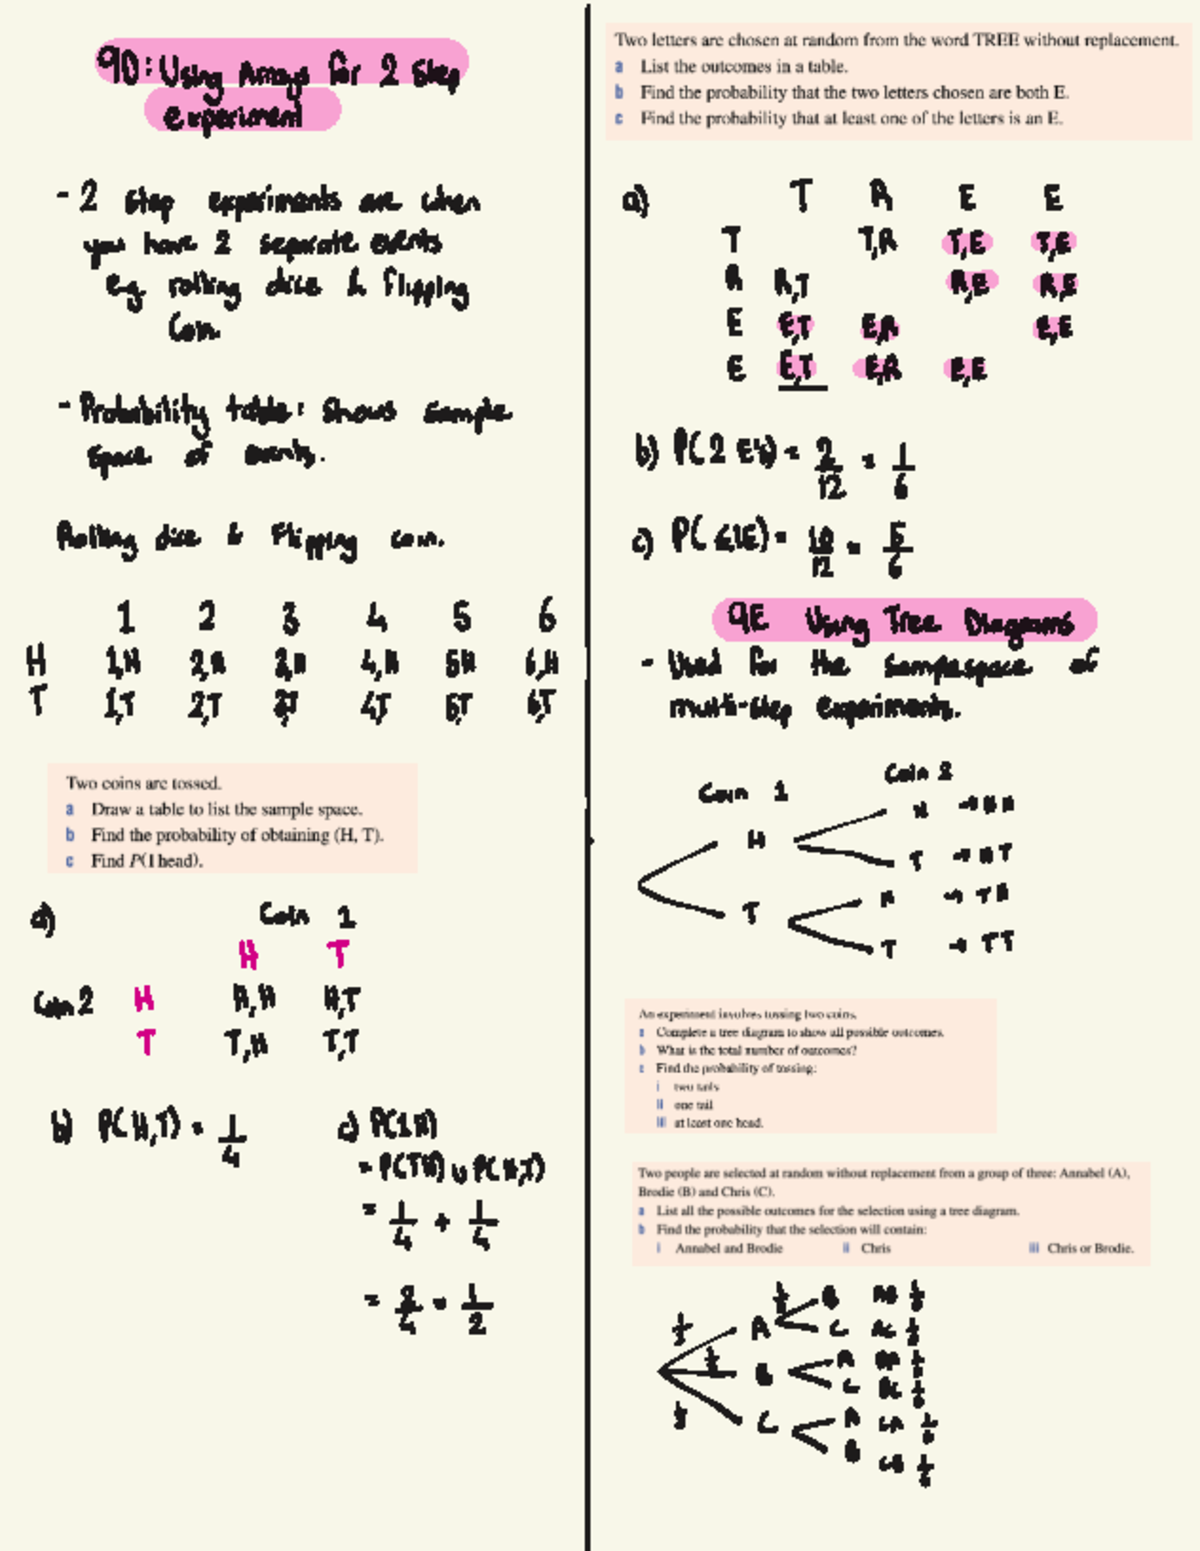 9D: Using Arrays for 2 Step
experiment
- 2 Step experiments are when
you have 2 separate events
eg rolling dice & flipping
Coin.
- Probability table: Shows sample
space of events.
Rolling dice & Flipping coin.
1 2 3 4 5 6
H 1,H 2,H 3,H 4,H 5,H 6,H
T 1,T 2,T 3,T 4,T 5,T 6,T
Two coins are tossed.
a Draw a table to list the sample space.
b Find the probability of obtaining (H, T).
c Find P(1 head).
a) Coin 1
H T
Coin 2 H H,H H,T
T T,H T,T
b) P(H,T) = 1/4
c) P(1H)
= P(TH) ∪ P(H,T)
= 1/4 + 1/4
= 2/4 = 1/2
Two letters are chosen at random from the word TREE without replacement.
a List the outcomes in a table.
b Find the probability that the two letters chosen are both E.
c Find the probability that at least one of the letters is an E.
a) T R E E
T T,R T,E T,E
R R,T R,E R,E
E E,T E,R E,E
E E,T E,R E,E
b) P(2 E's) = 2/12 = 1/6
c) P(≤1E) = 10/12 = 5/6
9E Using Tree Diagrams
- Used for the samplespace of
multi-step experiments.
Coin 1 Coin 2
H H → HH
T → HT
T H → TH
T → TT
An experiment involves tossing two coins.
a Complete a tree diagram to show all possible outcomes.
b What is the total number of outcomes?
c Find the probability of tossing:
i two tails
ii one tail
iii at least one head.
Two people are selected at random without replacement from a group of three: Annabel (A),
Brodie (B) and Chris (C).
a List all the possible outcomes for the selection using a tree diagram.
b Find the probability that the selection will contain:
i Annabel and Brodie ii Chris iii Chris or Brodie.
A B AB
C AC
B A BA
C BC
C A CA
B CB 1/6